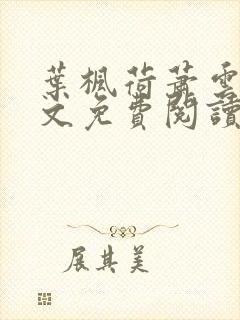 葉楓荷蕭雲
文免費閱讀
展其美